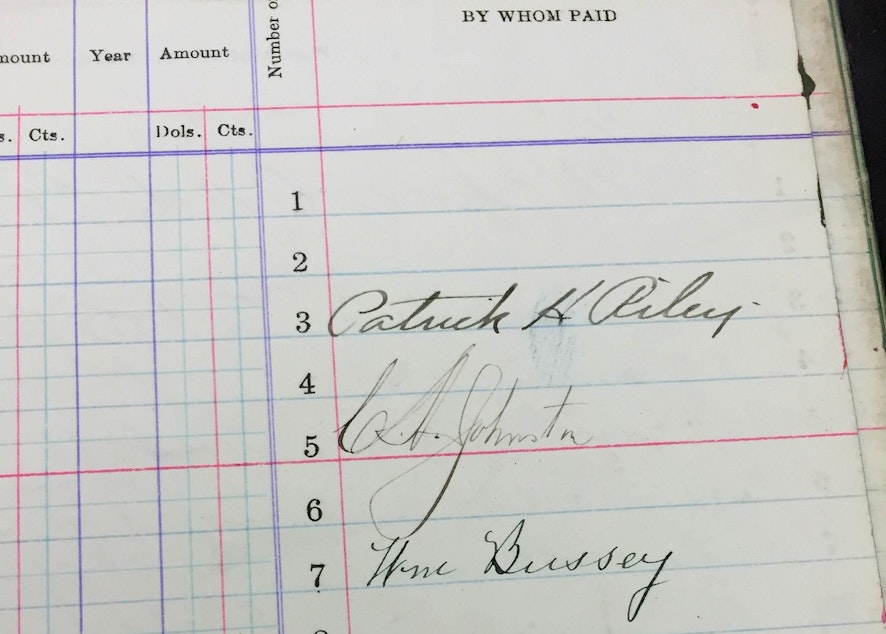 mount Year Amount Number o BY WHOM PAID
s. Cts. Dols. Cts.
1
2
3 Patrick H Riley
4
5 Johnston
6
7 Wm Bussey